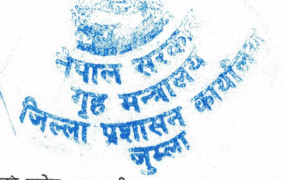 नेपाल सरकार
गृह मन्त्रालय
जिल्ला प्रशासन कार्यालय
जुम्ला